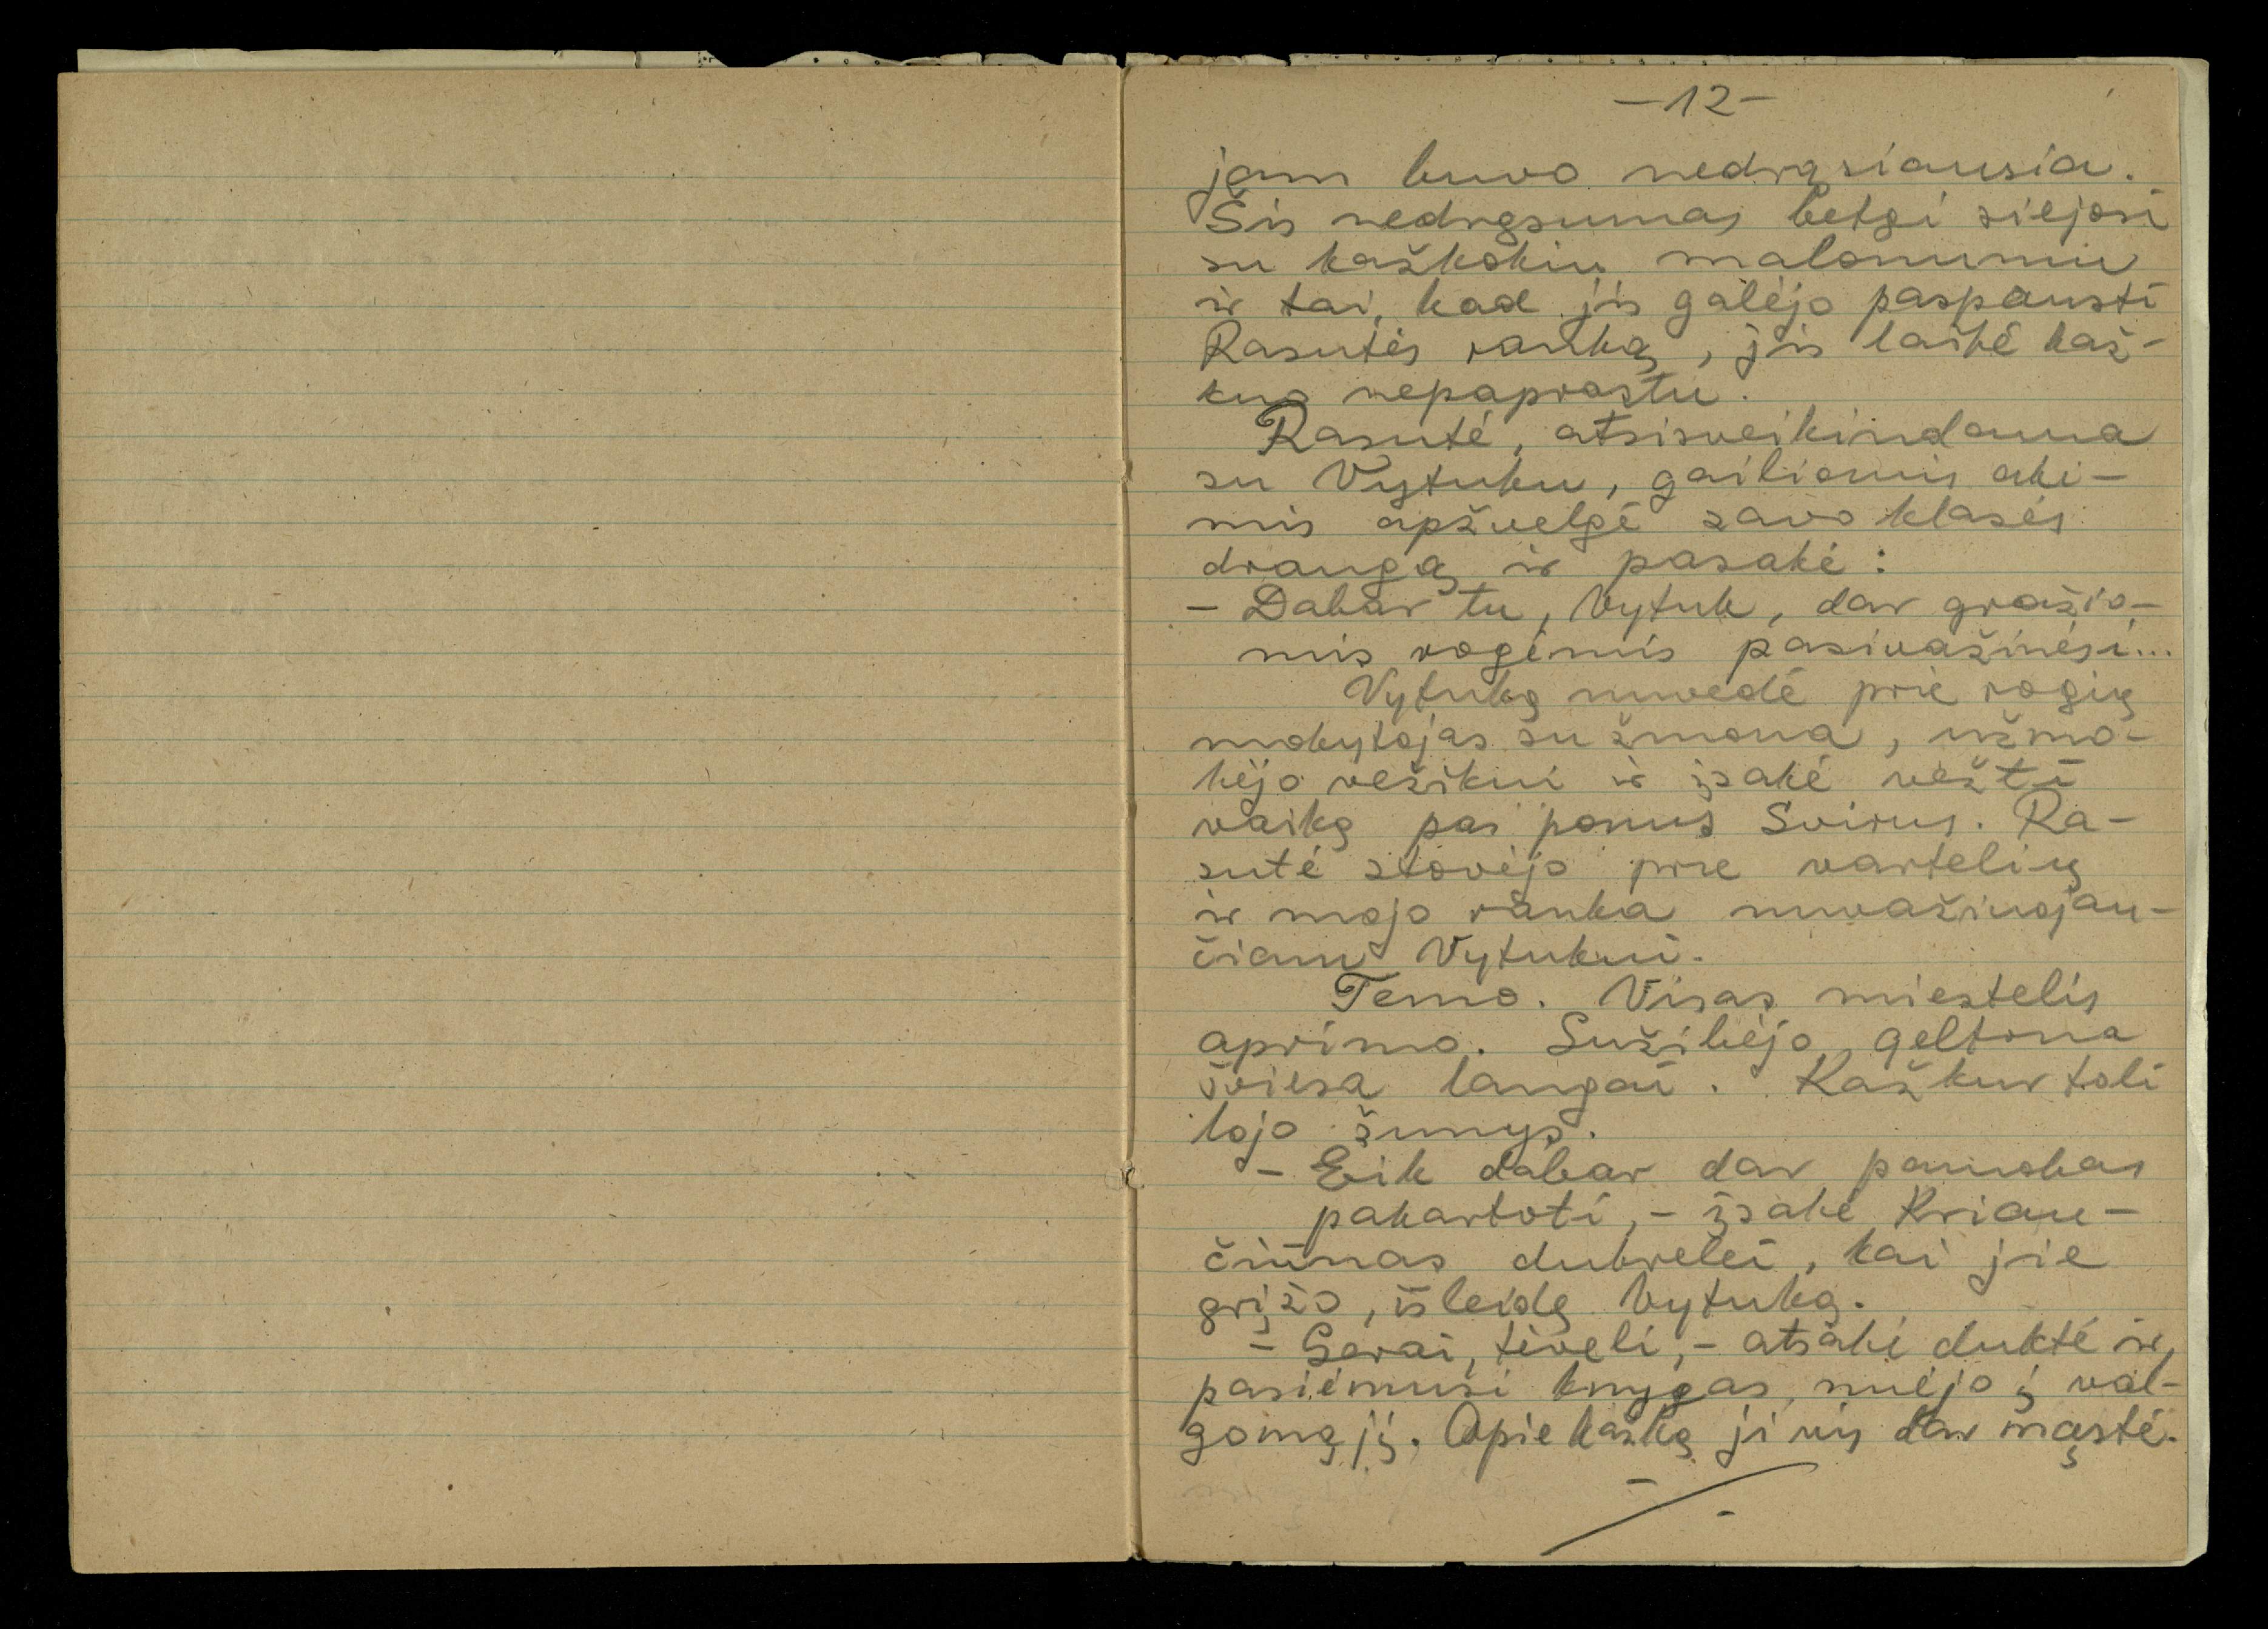 -12-
jam buvo nedrąsiausia.
Šis nedrąsumas betgi siejosi
su kažkokiu malonumu
ir tai, kad jis galėjo paspausti
Rasutės ranką, jis laikė kaž-
kuo nepaprastu.
Rasutė, atsisveikindama
su Vytuku, gailiomis aki-
mis apžvelgė savo klasės
draugą ir pasakė:
- Dabar tu, Vytuk, dar gražio-
mis rogėmis pasivažinėsi...
Vytuką nuvedė prie rogių
mokytojas su žmona, užmo-
kėjo vežikui ir įsakė vežti
vaiką pas ponus Svirus. Ra-
sutė stovėjo prie vartelių
ir mojo ranka nuvažiuojan-
čiam Vytukui.
Temo. Visas miestelis
aprimo. Sužibėjo geltona
šviesa langai. Kažkur toli
lojo šunys.
- Eik dabar dar pamokas
pakartoti, - įsakė Kriau-
čiūnas dukrelei, kai jie
grįžo, išleidę Vytuką.
- Gerai, tėveli, - atsakė duktė ir,
pasiėmusi knygas, nuėjo į val-
gomąjį. Apie kažką ji vis dar mąstė.